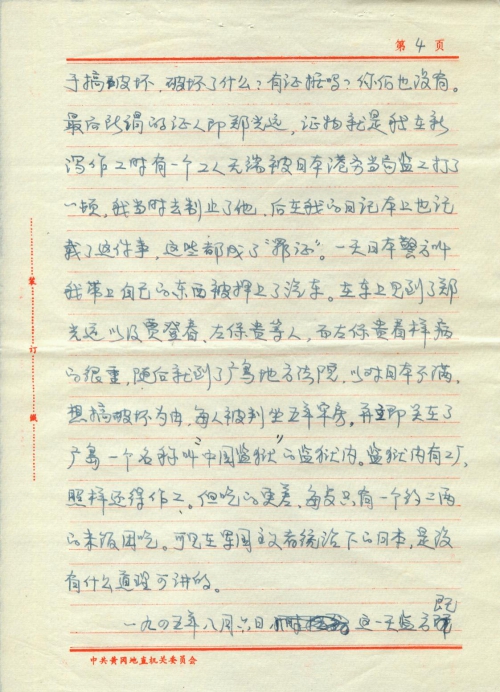 第 4 页
于搞破坏，破坏了什么？有证据吗？你们也没有。
最后所谓的证人即郑光远，证物就是我在新
泻作工时有一个工人无端被日本港方当局监工打了
一顿，我当时去制止了他，后在我的日记本上也记
载了这件事，这些都成了“罪证”。一天日本警方叫
我带上自己的东西被押上了汽车。在车上见到了郑
光远以及贾登春、左保贵等人，而左保贵看样病
的很重，随后就到了广岛地方法院，以对日本不满，
想搞破坏为由，每人被判坐五年牢房，再立即关在了
广岛一个名称叫“中国监狱”的监狱内。监狱内有工厂，
照样还得作工。但吃的更差、每餐只有一个约二两
的米饭团吃。可见在军国主义者统治下的日本，是没
有什么道理可讲的。
一九四五年八月六日 这一天监方既
装
订
线
中共黄冈地直机关委员会